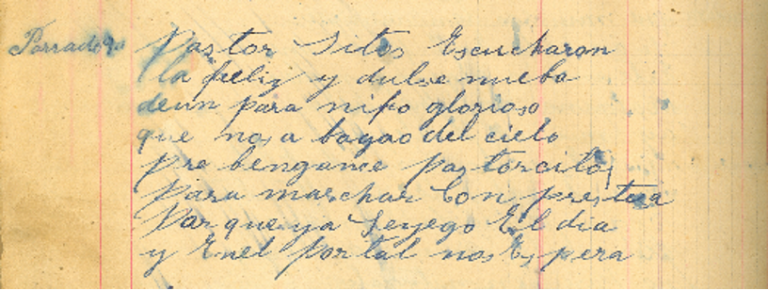 Parrado 9o Pastor Sitos Escucharon
la feliz y dulse nueba
deun para niño glorioso
que nos a bagao del cielo
pre bengance pastorcitos
para marchar Con prestesa
Por que ya Seyego El dia
y Enel portal nos Es pera